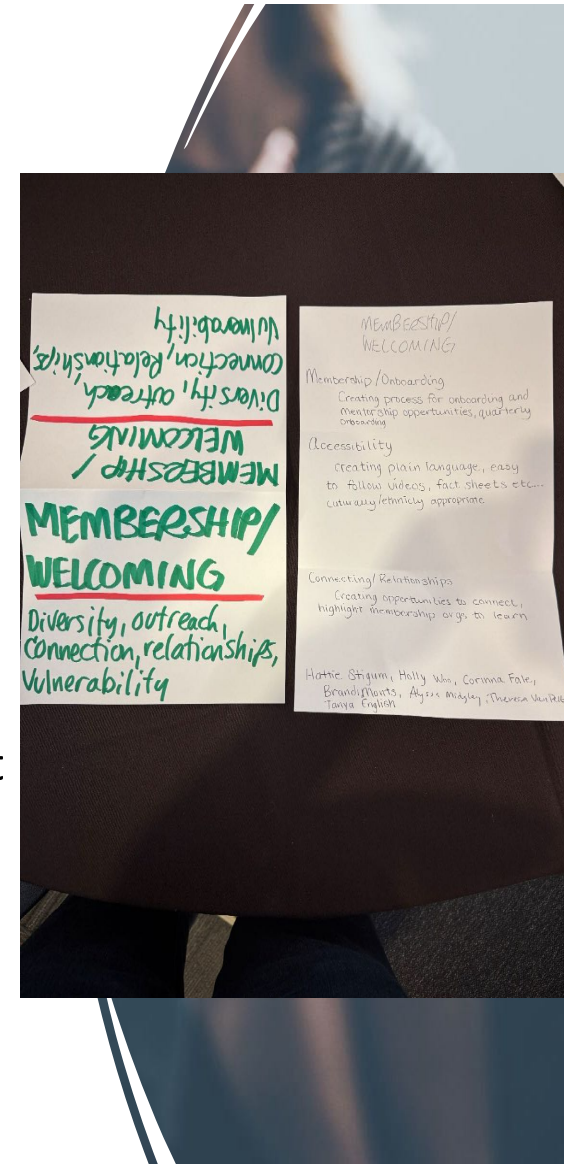 Vulnerability
Connection, Relationships,
Diversity, outreach,
WELCOMING
MEMBERSHIP/
MEMBERSHIP/
WELCOMING
Diversity, outreach,
Connection, relationships,
Vulnerability
MEMBERSHIP/
WELCOMING
Membership/Onboarding
Creating process for onboarding and
mentership opportunities, quarterly
onboarding
Accessibility
creating plain language, easy
to follow videos, fact sheets etc...
appropriate
Connecting/Relationships
Creating opportunities to connect,
highlight membership orgs to learn
Hattie Stigum, Holly Woo, Corinna Fale,
Brandi Monts, Alysse Midgley, Theresa
Tanya English
t